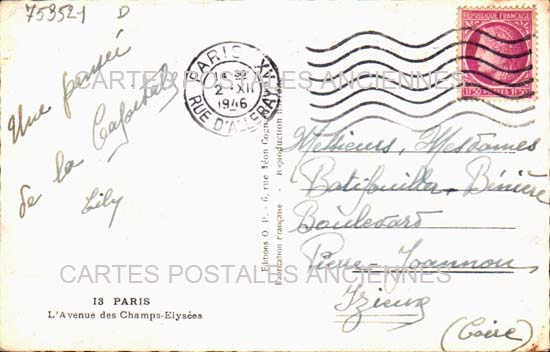 75352-1 D
Une pensée
de la Capitale
Lily
13 PARIS
L'Avenue des Champs-Elysées
Editions O. P. - 6, rue Léon
Fabrication Française - Reproduction
PARIS XV
2 XII
1946
RUE D'ALLERAY
REPUBLIQUE FRANÇAISE
1F50 POSTES 1F50
Messieurs, Mesdames
Batifouillier-Bénière
Boulevard
Pierre-Joannon
Izieux
(Loire)
CARTES POSTALES ANCIENNES
CARTES POSTALES ANCIENNES